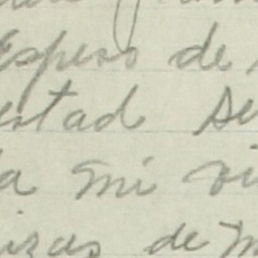 Espero de
stad su
a mi vi
izas de m